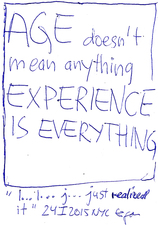 AGE doesn't
mean anything
EXPERIENCE
IS EVERYTHING
"I... I... j... just realized
it" 24 I 2015 NYC